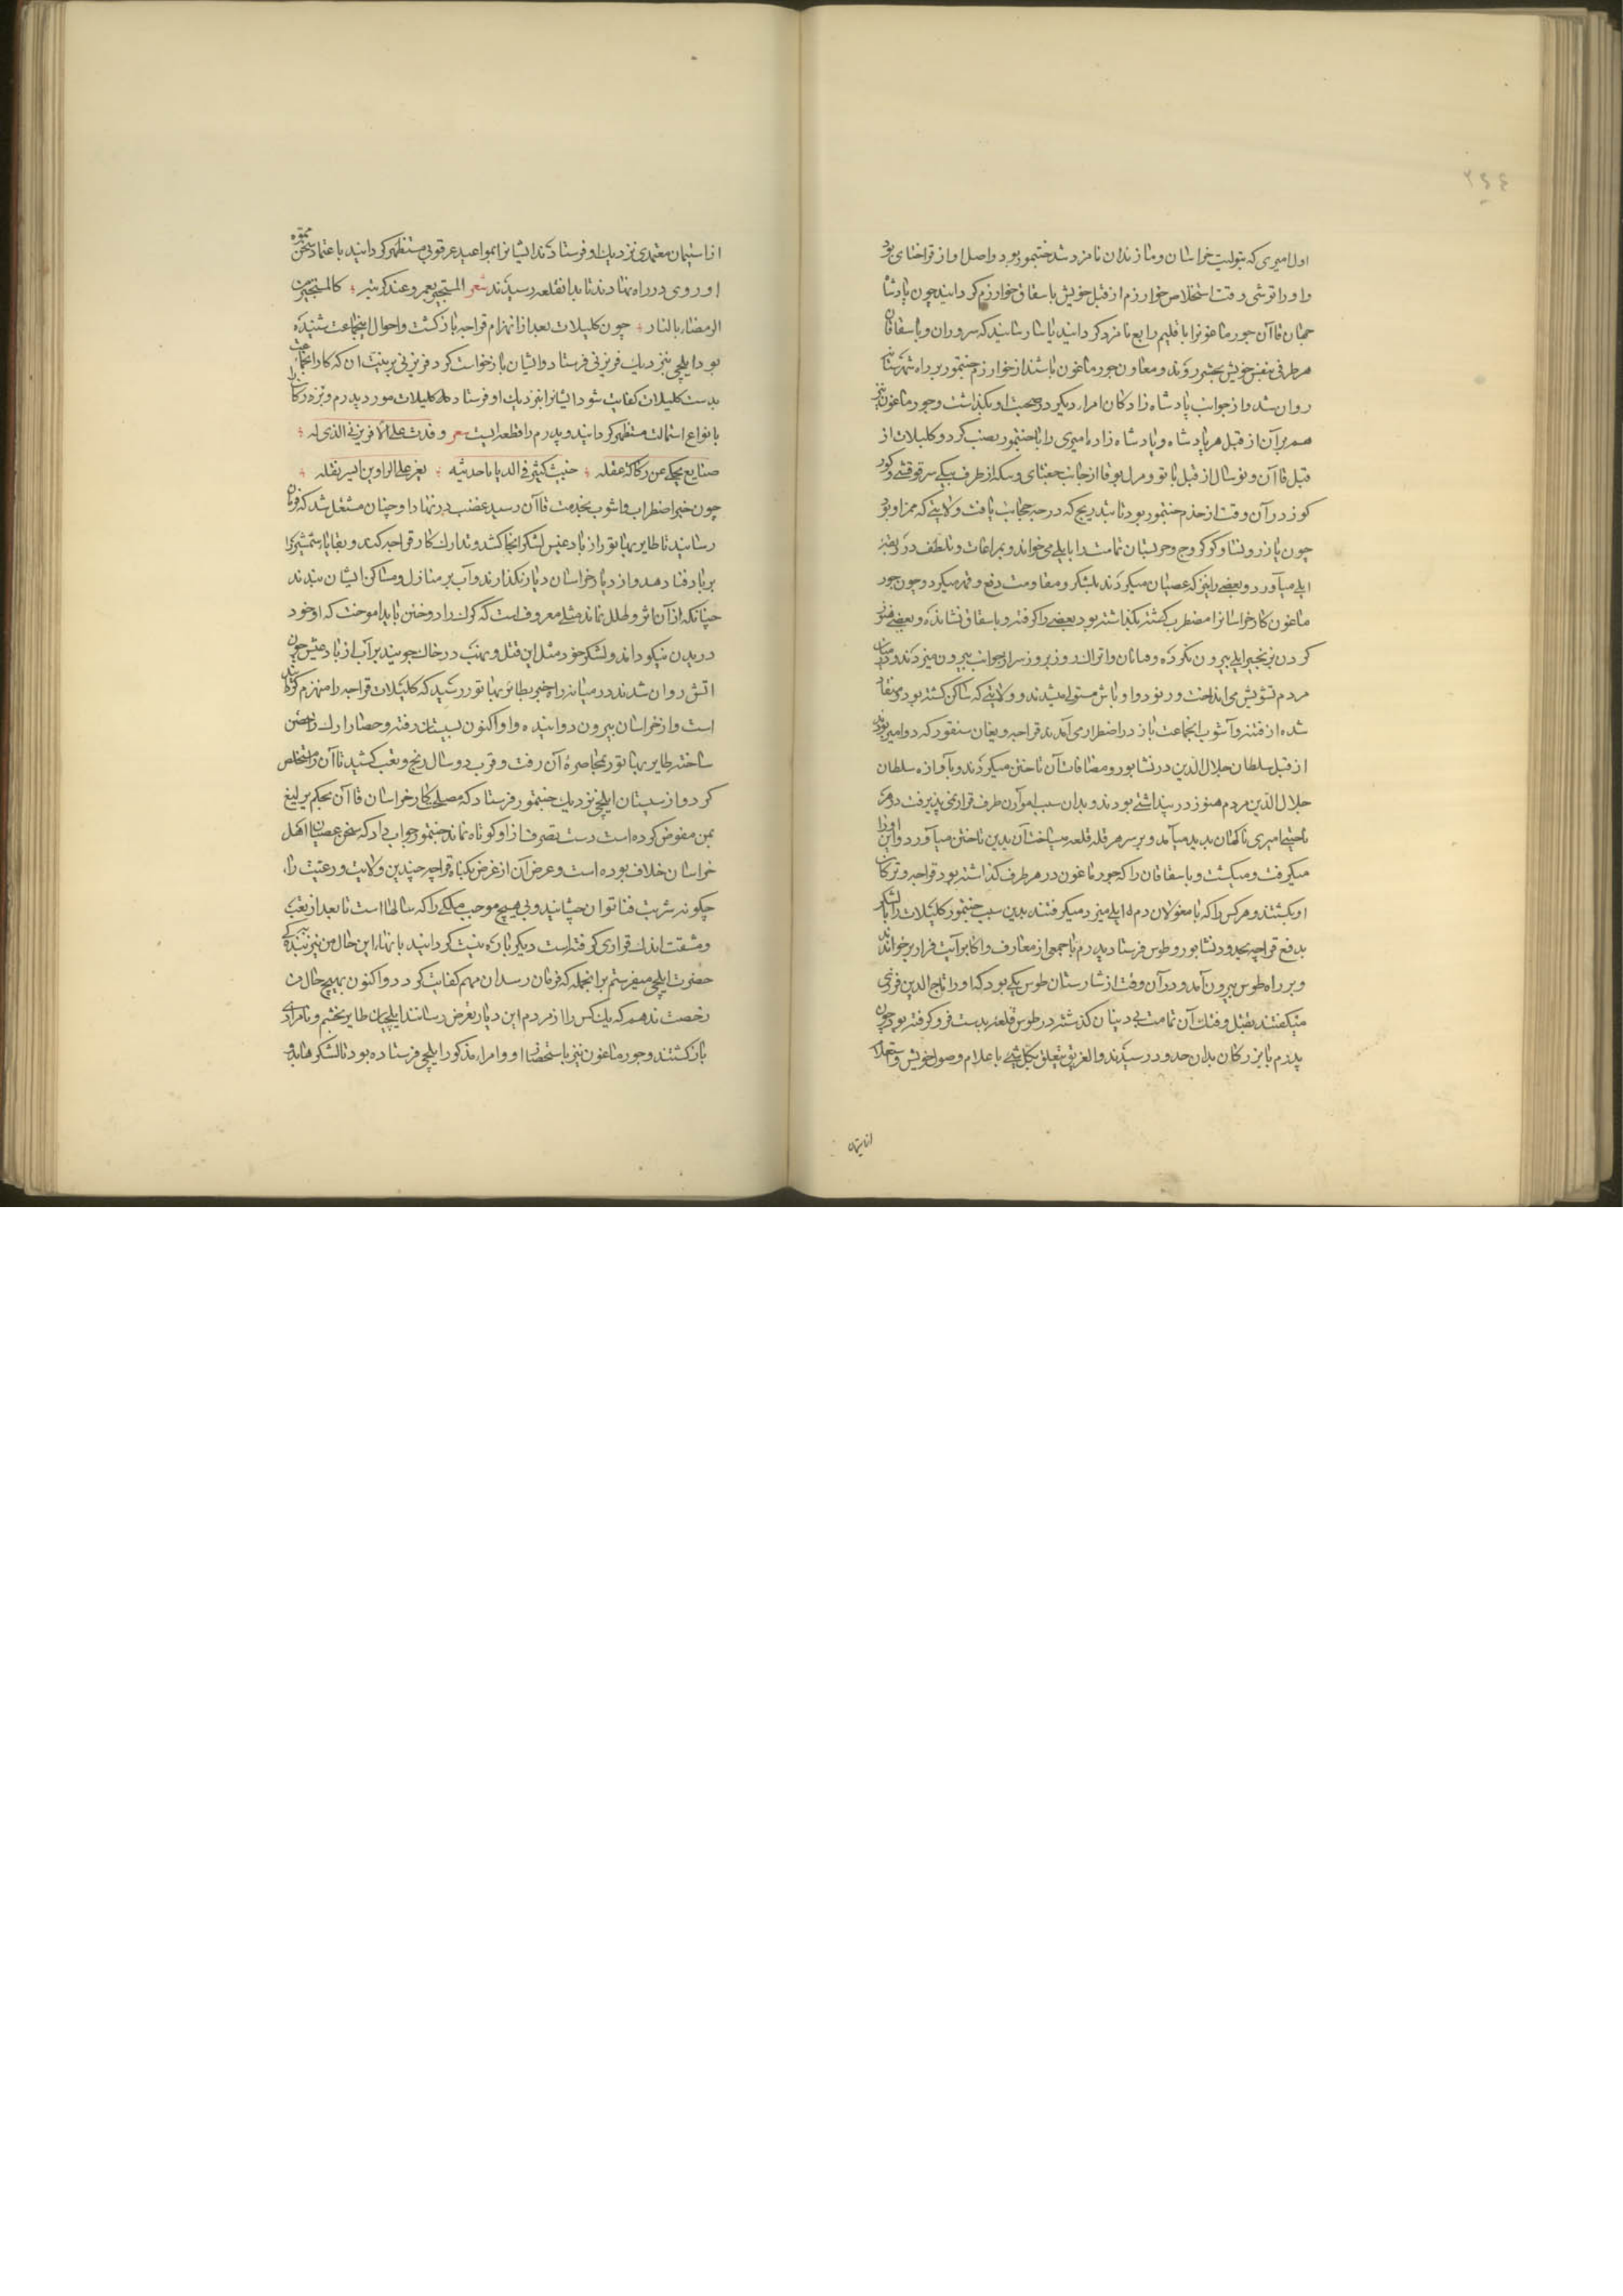 ۲۴۴
اول امیری که بتولیت خراسان و مازندران نامزد شد جنتمور بود و اصل او از قراختای بود
و او را توشی وقت استخلاص خوارزم از قبل خویش باسقاق خوارزم گردانید چون پادشاه
جهان قاآن جورماغون را باقلیم رابع نامزد گردانید یاسا رسانید که سروران و باسقاقان
هر طرفی بنفس خویش بحشر روند و معاون جورماغون باشند از خوارزم جنتمور بر راه شهرستانه
روان شد و از جوانب پادشاه زادگان امراء دیگر در صحبت او بگذاشت و جورماغون نیز
هم برآن از قبل هر پادشاه و پادشاه زاده امیری را با جنتمور نصب کرد و کلبلات از
قبل قاآن و نوسال از قبل باتو و از جانب جغتای و از طرف بیکی سرقوقتی و کور
کوز در آن وقت از خدم جنتمور بود تا بتدریج که درجه حجابت یافت و ولایتی که بر ممر او بود
چون یازر و نسا و کوکروخ و جریستان تمامت را بایلی می‌خواند و بمراعات و تلطف در ربقه
ایلی می‌آورد و بعضی را نیز که عصیان میکردند بلشکر و مقاومت دفع و قهر میکرد و چون جور
ماغون کار خراسان را مضطرب گشته بگذاشته بود بعضی را گرفته و باسقاق نشانده و بعضی هنوز
گردن بزنجیر ایلی بیرون نکرده و رنود و اتراک روز بروز سر از جوانب بیرون میزدند و در میان
مردم تشویش می‌انداخت و رنود و اوباش مستولی میشدند و ولایتی که ساکن گشته بود و منقاد
شده از فتنه و آشوب آنجماعت باز در اضطراب می‌آمدند قراجه و یغان سنقور که دو امیر بودند
از قبل سلطان جلال الدین در نشابور و مضافات آن تاختن میکردند و بآوازه سلطان
جلال الدین مردم هنوز در پنداشتی بودند و بدان سبب امور آن طرف قرار نمی پذیرفت در هر
ناحیتی امیری ناگهان پدید میآمد و بر سر هر قله قلعه میساخت آن بدین تاختن میآورد و این او را
میگرفت و میکشت و باسقاقان را که جورماغون در هر طرف گذاشته بود قراجه و ترکان
او بکشتند و هرکس را که با مغولان دم ایلی میزد میگرفتند بدین سبب جنتمور کلبلات را با لشکر
بدفع قراجه بحدود نشابور و طوس فرستاد پدرم با جمعی از معارف و اکابر آیت فرار برخواند
و بر راه طوس بیرون آمد و در آن وقت از شارستان طوس یکی بود که او را تاج الدین فریزنی
میگفتند بقتل و فتک آن تمامت بی دینان گذشته در طوس قلعه بدست فرو گرفته بود چون
پدرم با بزرگان بدان حدود رسیدند و الغریق یتعلق بکل شیء باعلام وصول خویش و استعلام
از استیمان
از استیمان معتمدی نزدیک او فرستادند ایشانرا بمواعید عرقوبی مستظهر گردانید باعتماد سخن مموه
او روی در راه نهادند تا بدان قلعه رسیدند شعر المستجیر بعمرو عند کربته کالمستجیر من
الرمضاء بالنار چون کلبلات بعد از انهزام قراجه باز گشت و احوال اینجماعت شنیده
بود ایلچی بنزدیک فریزنی فرستاد و ایشان را بازخواست کرد فریزنی بر نیت آن که کار آنجماعت
بدست کلبلات کفایت شود ایشانرا بنزدیک او فرستاد کلبلات مورد پدرم و بزرگان را
بانواع استمالت مستظهر گردانید و پدرم را قطعه ایست شعر وفدت علی الافریزنی الذی له
صنایع یحکی عن رکاکة عقله خبیث کثیر فی الدنایا حدیثه یعز علی الراوین ایسر نقله
چون خبر اضطراب و آشوب بخدمت قاآن رسید غضب در نهاد او چنان مشتعل شد که فرمان
رسانید تا طایر بهاتور از بادغیس لشکر آنجا کشد و تدارک کار قراجه کند و بقایا شمشیر را
بر باد فنا دهد و از دیار خراسان دیار نگذارند و آب بر منازل و مساکن ایشان ببندند
چنانکه از آن اثر و طلل نماند مثلی معروف است که گرگ را دوختن نباید آموخت که او خود
دریدن نیکو داند و لشکر خود مثل این قتل و نهب در خاک جویند بر آب از باد پیش چون
آتش روان شدند در میانه راه خبر بطایر بهاتور رسید که کلبلات قراجه را منهزم گردانیده
است و از خراسان بیرون دوانیده و او اکنون بسیستان رفته و حصار ارک را حصن
ساخته طایر بهاتور بمحاصره آن رفت و قرب دو سال رنج و تعب کشید تا آن را مستخلص
کرد و از سیستان ایلچی نزدیک جنتمور فرستاد که مصلحت کار خراسان قاآن بحکم یرلیغ
بمن مفوض کرده است دست تصرف از او کوتاه نماند جنتمور جواب داد که سخن عصیان اهل
خراسان خلاف بوده است و عرض آن از غرض بگناه قراجه چندین ولایت و رعیت را
چگونه شربت فنا توان چشانید و بی هیچ موجب ملکی را که سالها است تا بعد از تعب
و مشقت اندک قراری گرفته است دیگر باره نیست گردانید بانهاء این حال من نیز بنزدیک
حضرت ایلچی میفرستم بر آنجمله که فرمان رسد آن مهم کفایت کرده و اکنون بهیچ حال
رخصت ندهم که یک کس را از مردم این دیار تعرض رسانند ایلچیان طایر بخشم و نامرادی
باز گشتند و جورماغون نیز باستحضار او و امراء مذکور ایلچی فرستاده بود تا لشکرها بدو